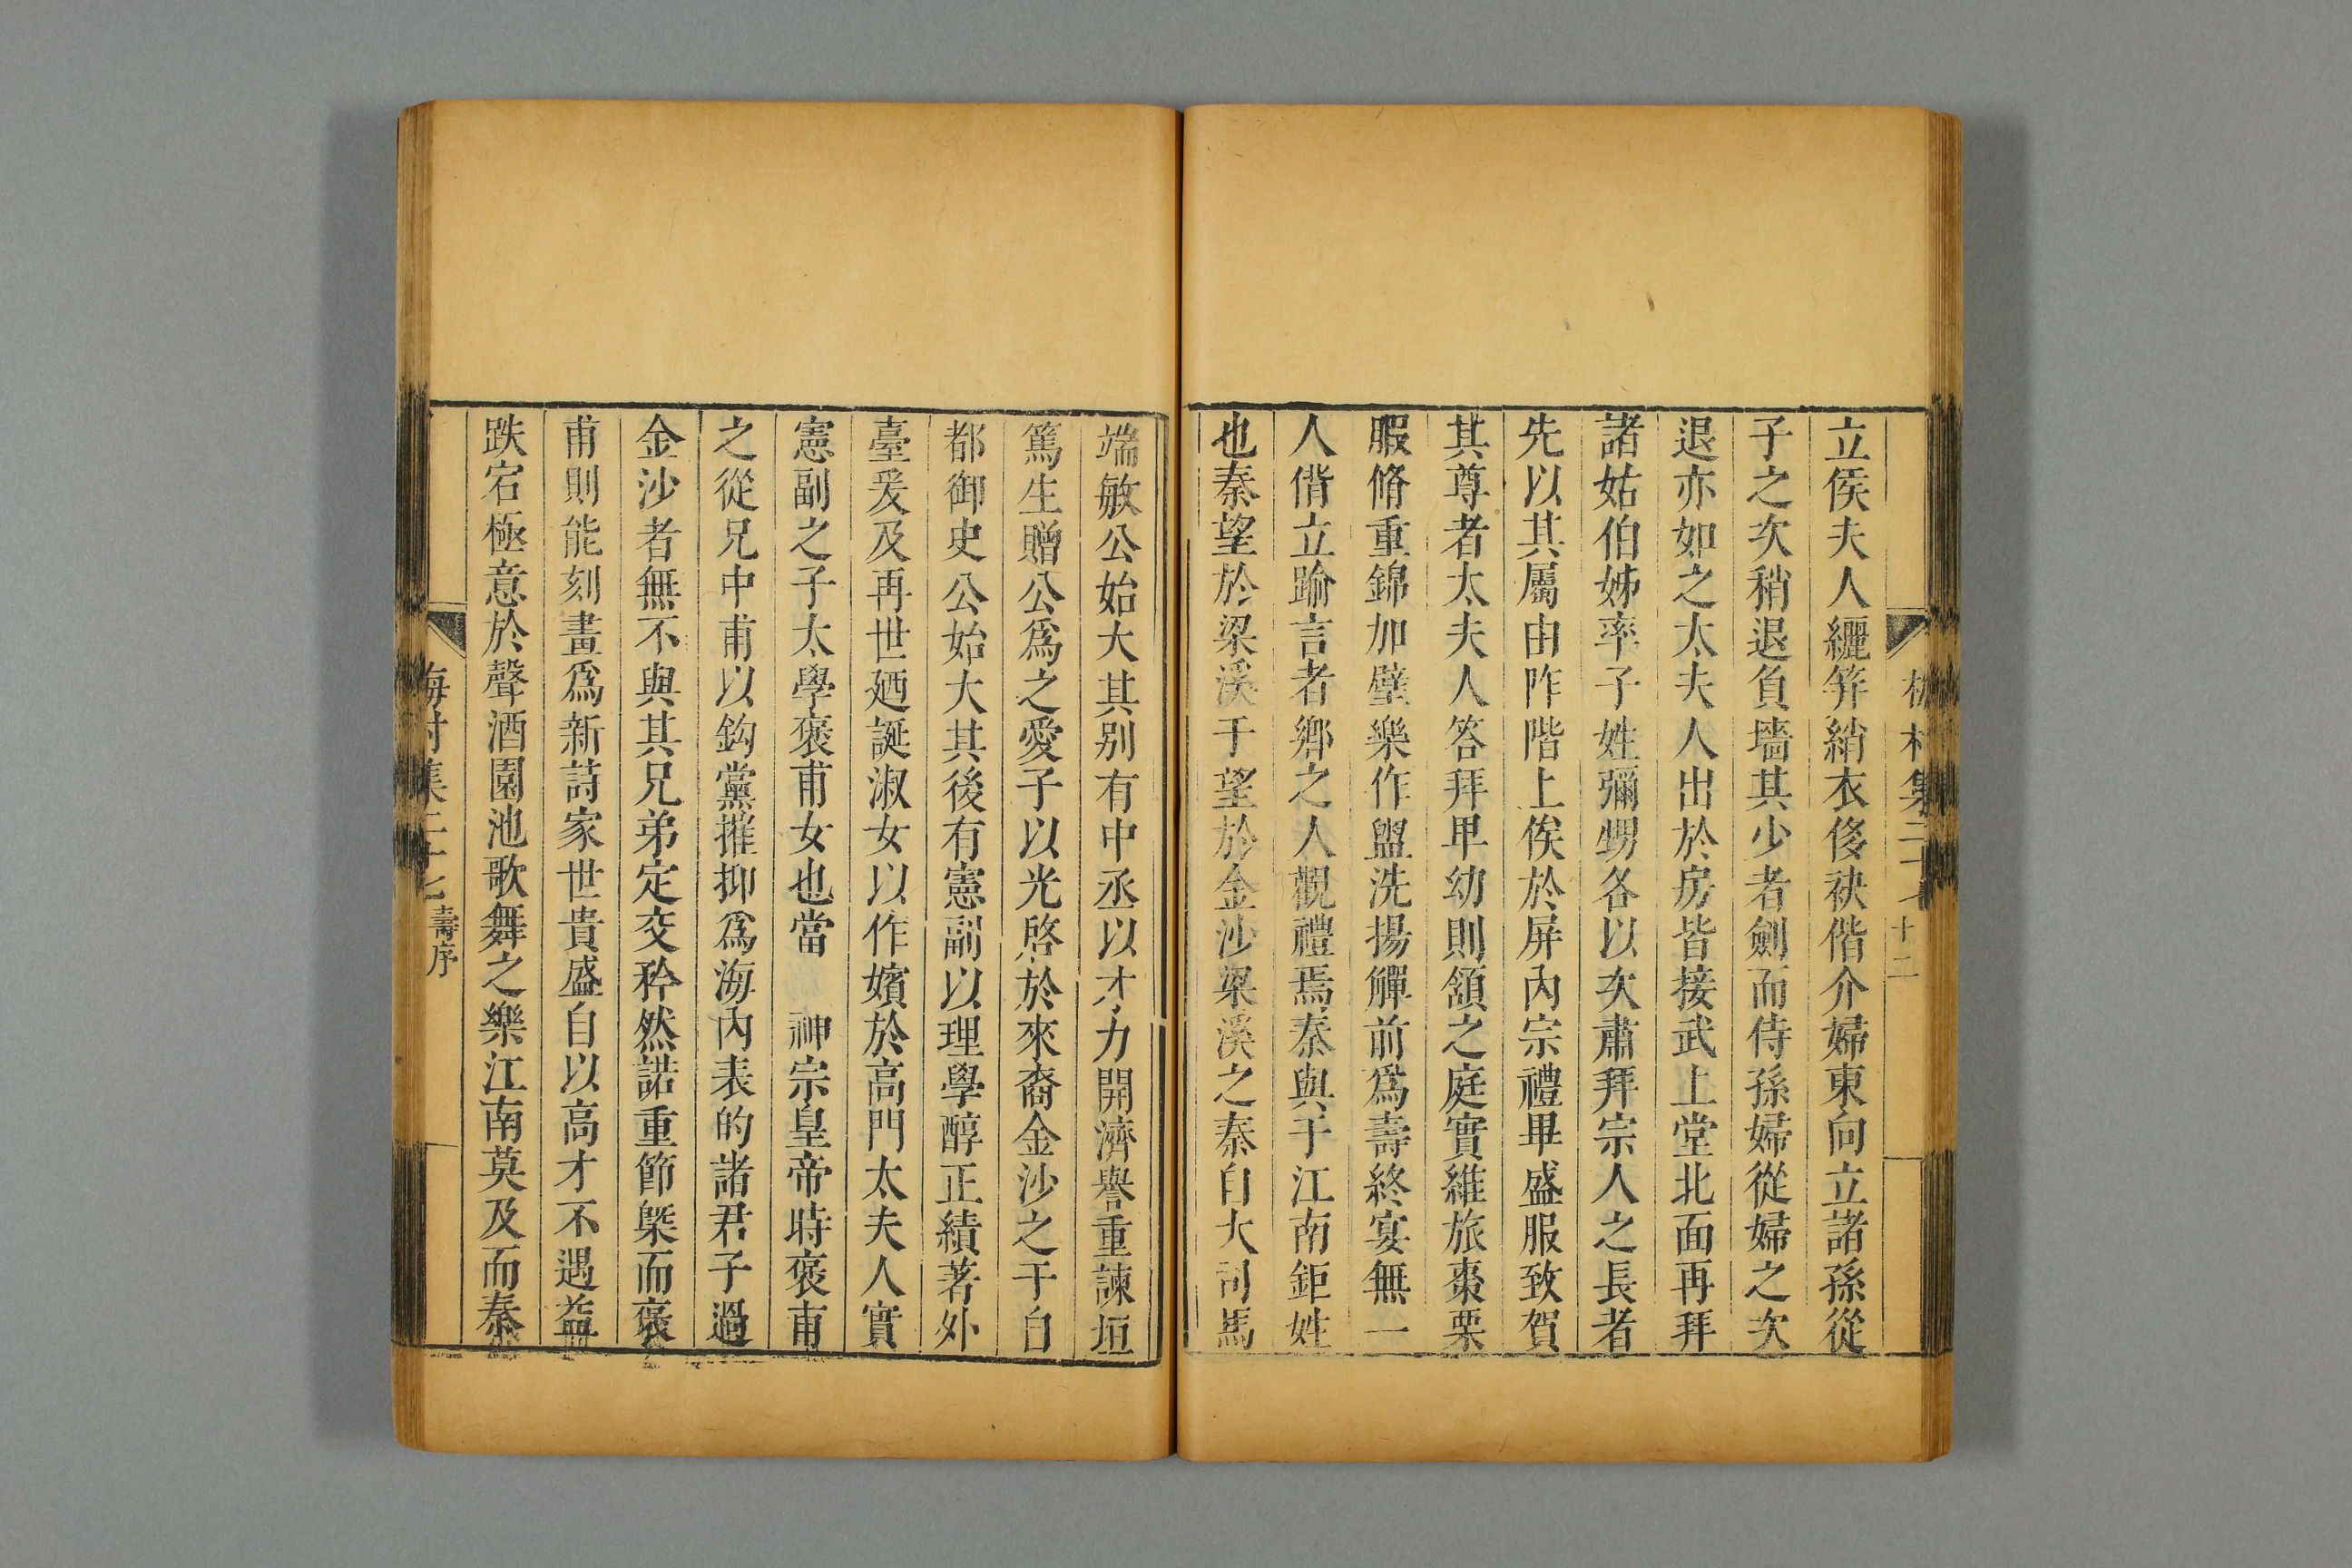 梅村集二十七 十二
立侯夫人纚笄綃衣侈袂偕介婦東向立諸孫從
子之次稍退負墻其少者劍而侍孫婦從婦之次
退亦如之太夫人出於房皆接武上堂北面再拜
諸姑伯姊率子姓彌甥各以次肅拜宗人之長者
先以其屬由阼階上俟於屏內宗禮畢盛服致賀
其尊者太夫人答拜卑幼則頷之庭實維旅棗栗
腶脩重錦加璧樂作盥洗揚觶前爲壽終宴無一
人偝立踰言者鄉之人觀禮焉秦與于江南鉅姓
也秦望於梁溪于望於金沙梁溪之秦自大司馬
端敏公始大其別有中丞以才力開濟譽重諫垣
篤生贈公爲之愛子以光啓於來裔金沙之于自
都御史公始大其後有憲副以理學醇正績著外
臺爰及再世廼誕淑女以作嬪於高門太夫人實
憲副之子太學褒甫女也當 神宗皇帝時褒甫
之從兄中甫以鈎黨摧抑爲海內表的諸君子過
金沙者無不與其兄弟定交矜然諾重節槩而褒
甫則能刻畫爲新詩家世貴盛自以高才不遇益
跌宕極意於聲酒園池歌舞之樂江南莫及而秦
梅村集二十七 壽序